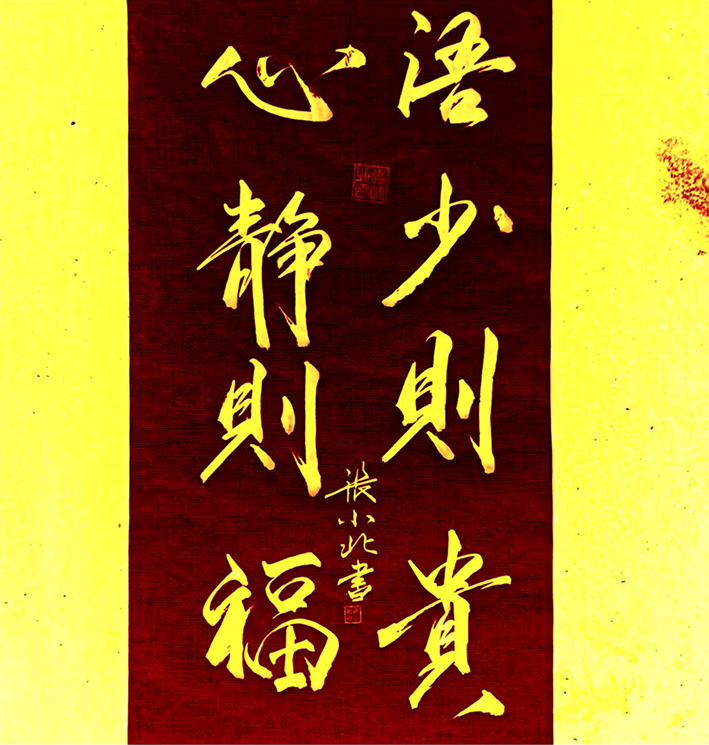 语少則貴
心静則福
張小北書